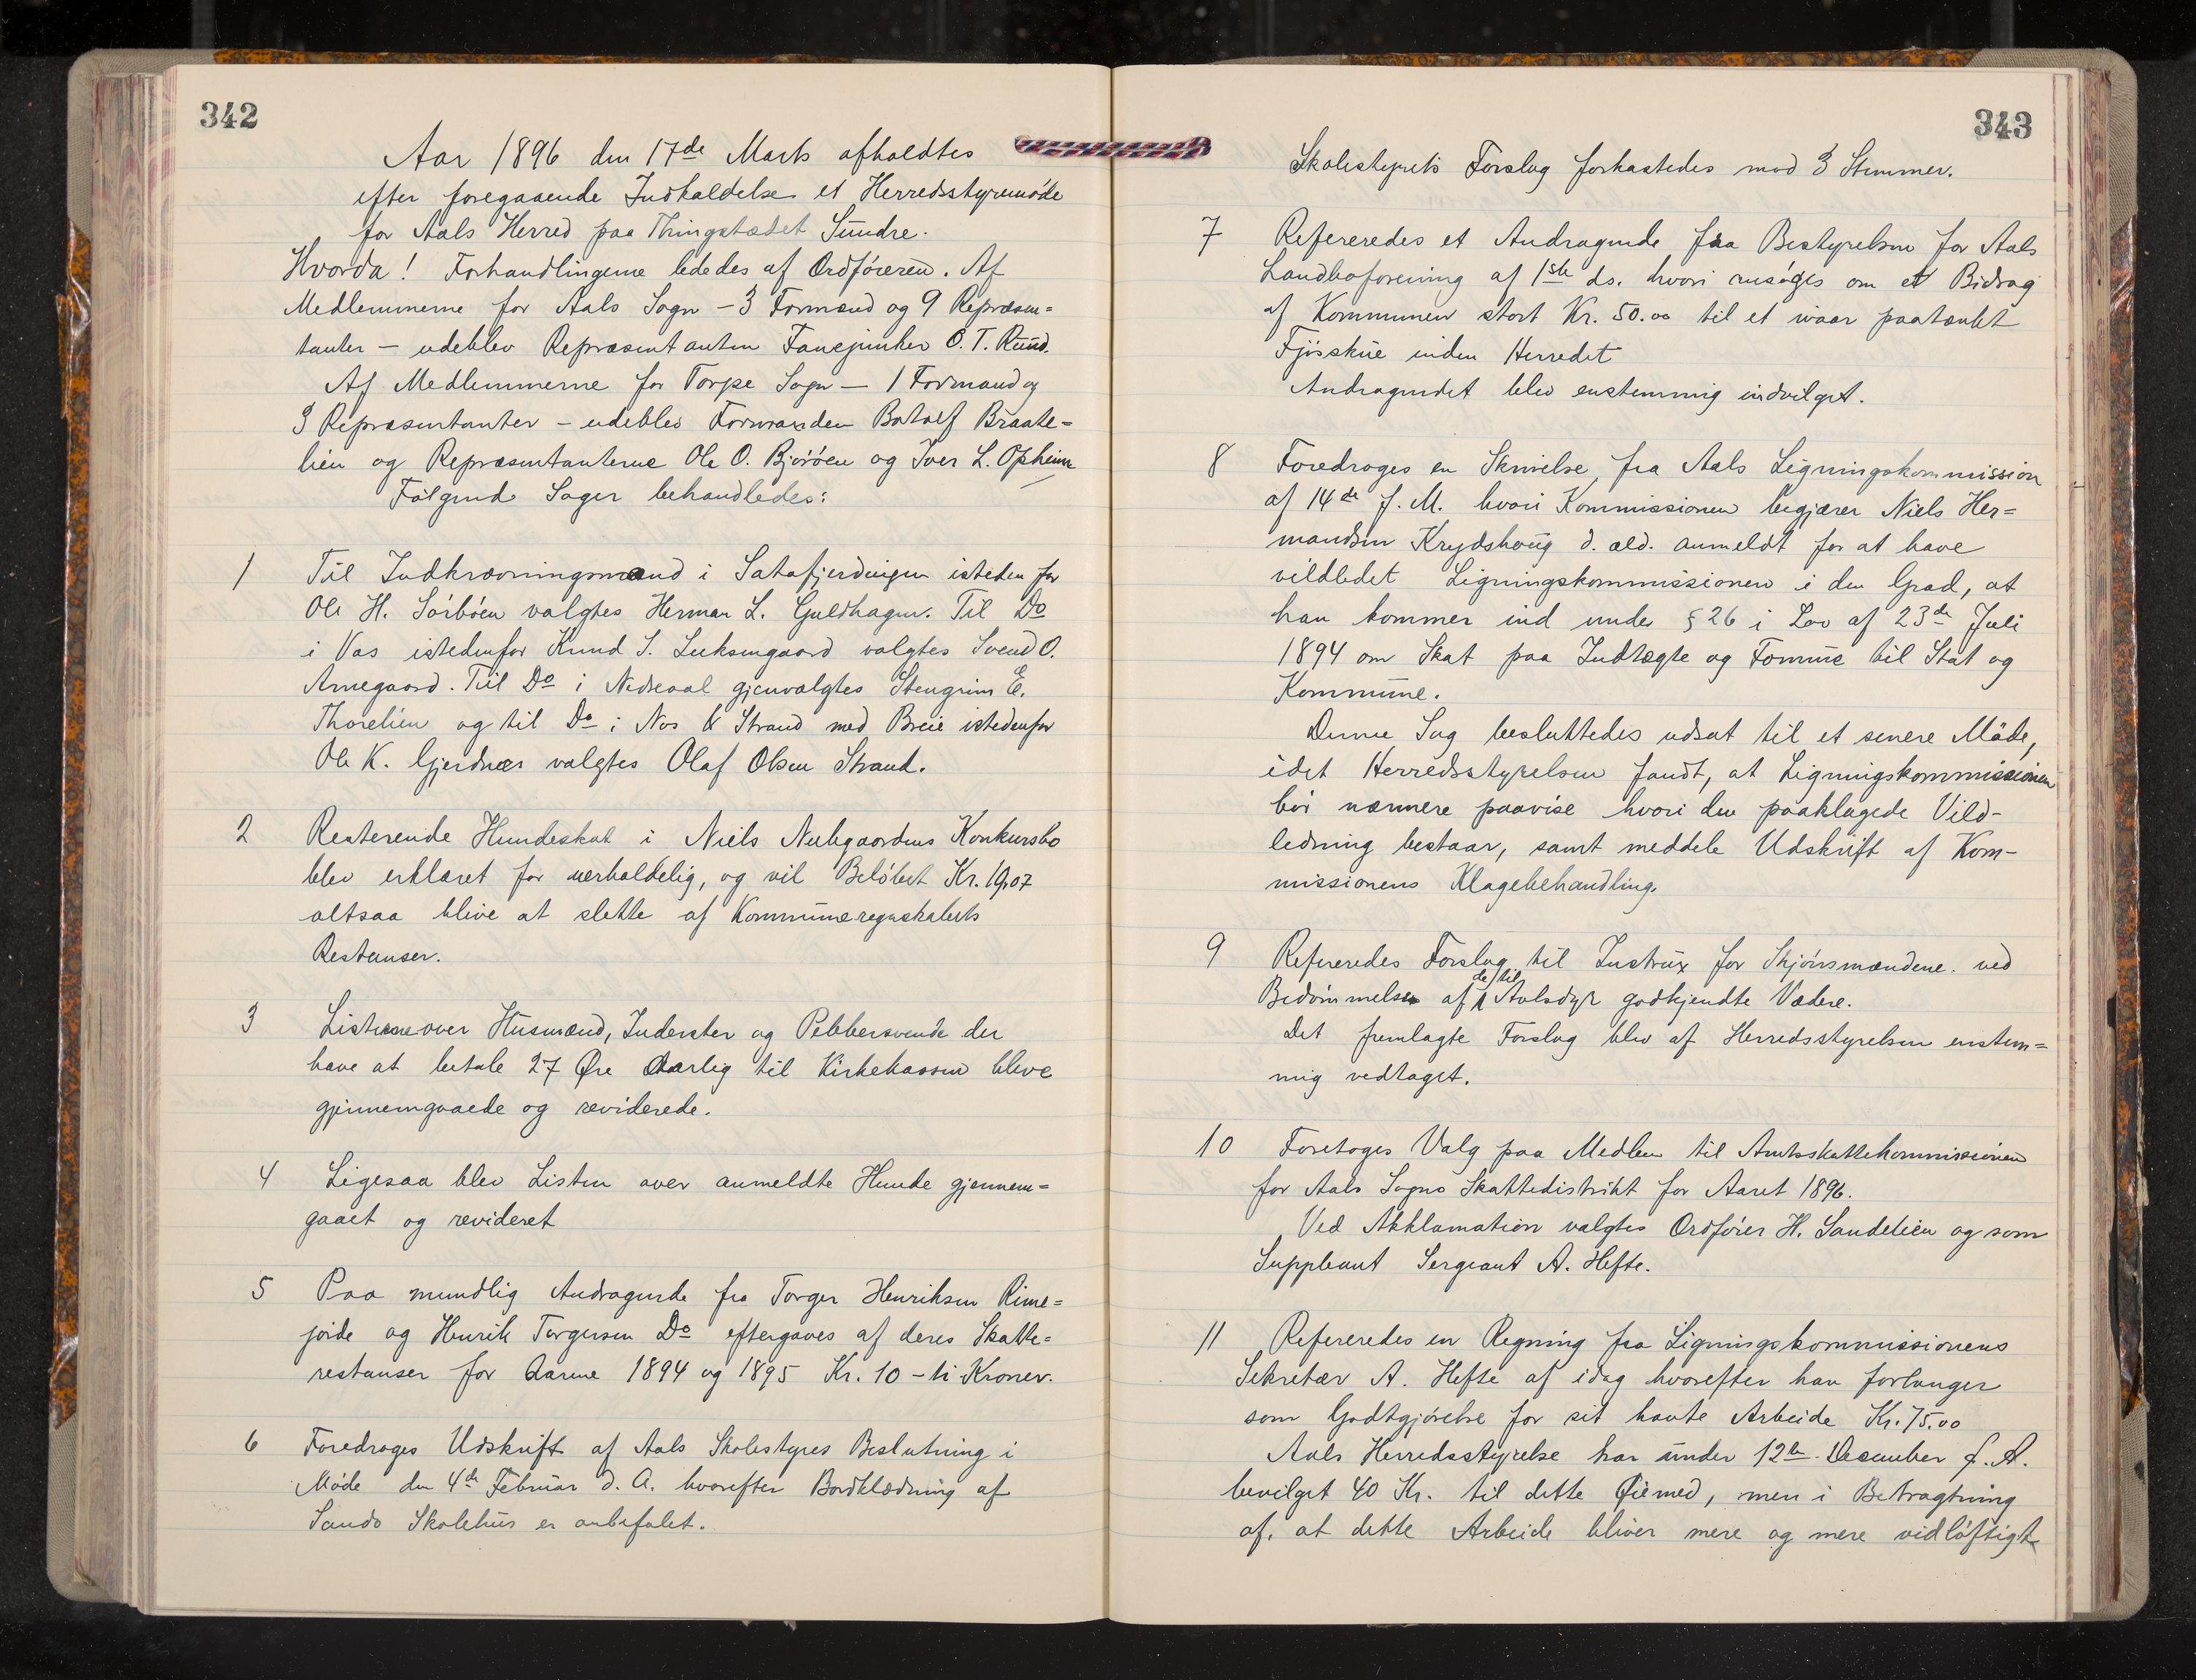 342
Aar 1896 den 17de Marts afholdtes
efter foregaaende Indkaldelse et Herredsstyremøde
for Aals Herred paa Thingstedet Sundre.
Hvorda! Forhandlingerne lededes af Ordføreren. Af
Medlemmerne for Aals Sogn – 3 Formænd og 9 Repræsen=
tanter – udeblev Repræsentanten Fanejunker O. T. Ruud.
Af Medlemmerne for Torpe Sogn – 1 Formand og
3 Repræsentanter – udeblev Formanden Botolf Braate=
lien og Repræsentanterne Ole O. Bjøröen og Iver L. Opheim
Følgende Sager behandledes:
1 Til Indkrævningsmænd i Satafjerdingen isteden for
Ole H. Sørbøen valgtes Herman L. Guldhagen. Til Do
i Vas istedenfor Knud S. Leksengaard valgtes Svend O.
Arnegaard. Til Do i Nedreaal gjenvalgtes Stengrim E.
Thorelien og til Do i Nos & Strand med Breie istedenfor
Ole K. Gjerdnes valgtes Olaf Olsen Strand.
2 Resterende Hundeskat i Niels Nubgaardens Konkursbo
blev erklæret for uerholdelig, og vil Beløbet Kr. 19,07
altsaa blive at slette af Kommuneregnskabets
Restanser.
3 Listerne over Husmænd, Inderster og Pebbersvende der
have at betale 27 Øre Aarlig til Kirkekassen bleve
gjennemgaaede og reviderede.
4 Ligesaa blev Listen over anmeldte Hunde gjennem=
gaaet og revideret
5 Paa mundlig Andragende fra Torger Henriksen Rime=
joide og Henrik Torgersen Do eftergaves af deres Skatte=
restanser for Aarene 1894 og 1895 Kr. 10 – ti Kroner.
6 Foredroges Udskrift af Aals Skolestyres Beslutning i
Møde den 4de Februar d. A. hvorefter Bordklædning af
Sando Skolehus er anbefalet.
343
Skolestyrets Forslag forkastedes mod 3 Stemmer.
7 Refereredes et Andragende fra Bestyrelsen for Aals
Landboforening af 1ste ds. hvori ansøges om et Bidrag
af Kommunen stort Kr. 50.00 til et iaar paatænkt
Fjøsskue inden Herredet
Andragendet blev enstemmig indvilget.
8 Foredroges en Skrivelse fra Aals Ligningskommission
af 14de f. M. hvori Kommissionen begjærer Niels Her=
mandsen Krydshoug d. æld. anmeldt for at have
vildledet Ligningskommissionen i den Grad, at
han kommer ind under § 26 i Lov af 23de Juli
1894 om Skat paa Indtægte og Formue til Stat og
Kommune.
Denne Sag besluttedes udsat til et senere Møde,
idet Herredsstyrelsen fandt, at Ligningskommissionen
bør nærmere paavise hvori den paaklagede Vild-
ledning bestaar, samt meddele Udskrift af Kom-
missionens Klagebehandling.
9 Refereredes Forslag til Instrux for Skjønsmændene ved
Bedømmelsen af de til Avlsdyr godkjendte Vædere.
Det fremlagte Forslag blev af Herredsstyrelsen enstem=
mig vedtaget.
10 Foretoges Valg paa Medlem til Amtsskattekommissionen
for Aals Sogns Skattedistrikt for Aaret 1896.
Ved Akklamation valgtes Ordfører H. Sandelien og som
Suppleant Sergeant A. Hefte.
11 Refereredes en Regning fra Ligningskommissionens
Sekretær A. Hefte af idag hvorefter han forlanger
som Godtgjørelse for sit havte Arbeide Kr. 75.00
Aals Herredsstyrelse har under 12te December f. A.
bevilget 40 Kr. til dette Øiemed, men i Betragtning
af, at dette Arbeide bliver mere og mere vidløftigt